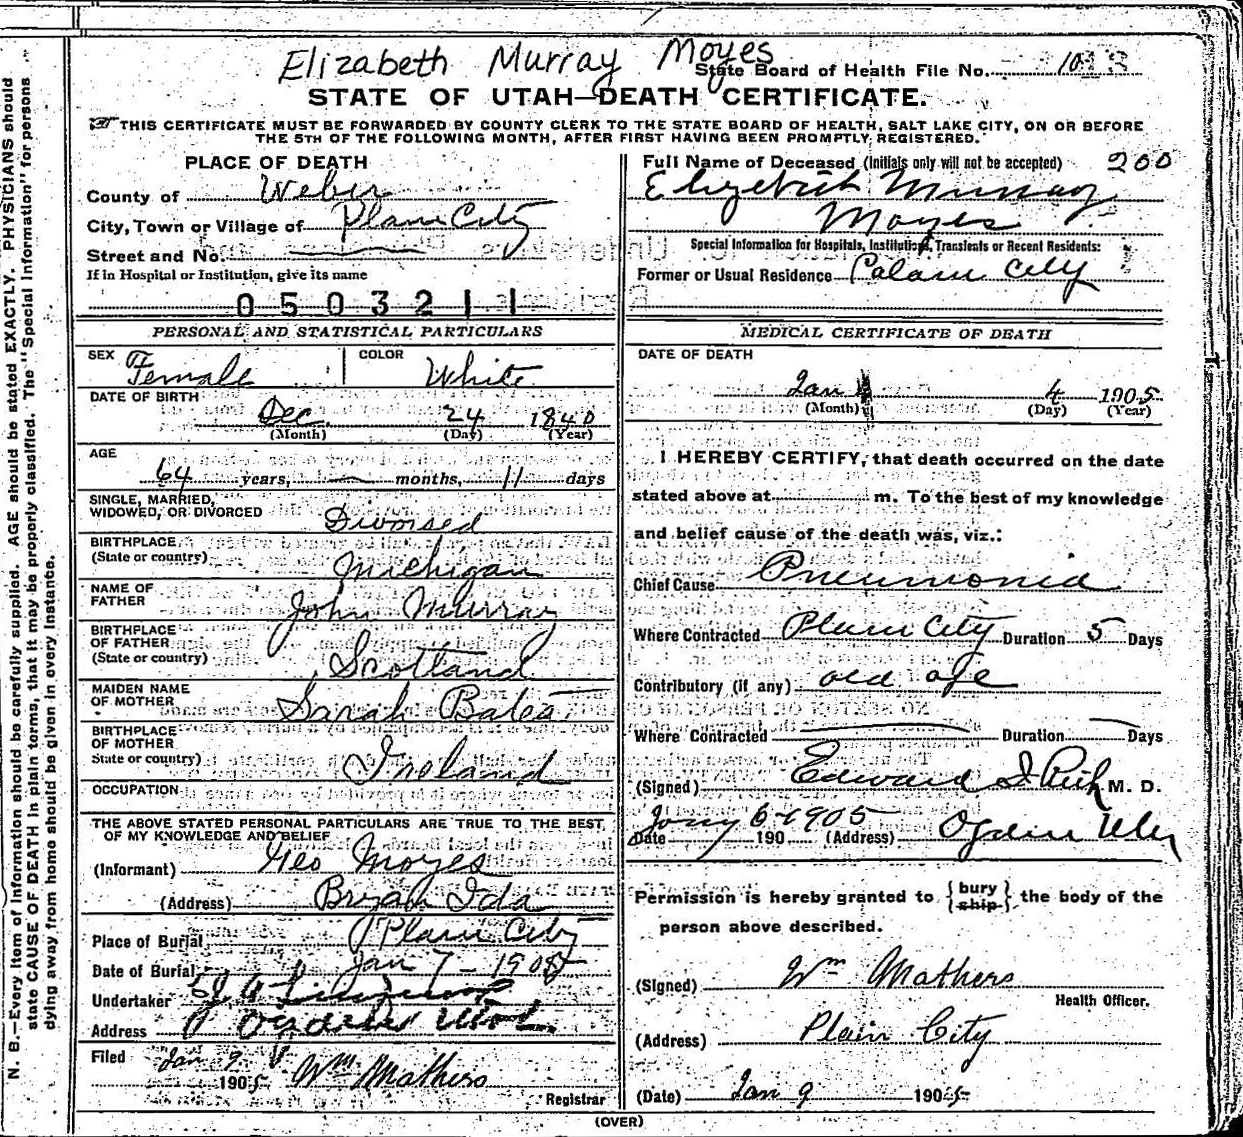 Elizabeth Murray Moyes
State Board of Health File No.
STATE OF UTAH—DEATH CERTIFICATE.
THIS CERTIFICATE MUST BE FORWARDED BY COUNTY CLERK TO THE STATE BOARD OF HEALTH, SALT LAKE CITY, ON OR BEFORE
THE 5TH OF THE FOLLOWING MONTH, AFTER FIRST HAVING BEEN PROMPTLY REGISTERED.
PLACE OF DEATH
County of Weber
City, Town or Village of Plain City
Street and No.
If in Hospital or Institution, give its name
0503211
Full Name of Deceased (Initials only will not be accepted) 200
Elizebeth Murray
Moyes
Special Information for Hospitals, Institutions, Transients or Recent Residents:
Former or Usual Residence Plain City
PERSONAL AND STATISTICAL PARTICULARS
SEX Female COLOR White
DATE OF BIRTH
Dec. 24 1840
(Month) (Day) (Year)
AGE
64 years, — months, 11 days
SINGLE, MARRIED,
WIDOWED, OR DIVORCED Divorsed
BIRTHPLACE
(State or country) Michigan
NAME OF
FATHER John Murray
BIRTHPLACE
OF FATHER
(State or country) Scotland
MAIDEN NAME
OF MOTHER Sarah Bates
BIRTHPLACE
OF MOTHER
State or country) Ireland
OCCUPATION
THE ABOVE STATED PERSONAL PARTICULARS ARE TRUE TO THE BEST
OF MY KNOWLEDGE AND BELIEF
(Informant) Geo Moyes
(Address) Ida
Place of Burial Plain City
Date of Burial Jan 7 - 1905
Undertaker
Address Ogden Utah.
Filed Jan 9
1905 Wm Mathers
Registrar
MEDICAL CERTIFICATE OF DEATH
DATE OF DEATH
Jan 4 1905
(Month) (Day) (Year)
I HEREBY CERTIFY, that death occurred on the date
stated above at m. To the best of my knowledge
and belief cause of the death was, viz.:
Chief Cause Pneumonia
Where Contracted Plain City Duration 5 Days
Contributory (if any) old age
Where Contracted — Duration — Days
(Signed) Edward I Rich M. D.
Date Jany 6-1905 190 (Address) Ogden Utah
Permission is hereby granted to {bury ship} the body of the
person above described.
(Signed) Wm Mathers
Health Officer.
(Address) Plain City
(Date) Jan 9 1905
(OVER)
N. B.—Every item of Information should be carefully supplied. AGE should be stated EXACTLY. PHYSICIANS should
state CAUSE OF DEATH in plain terms, that it may be properly classified. The "Special Information" for persons
dying away from home should be given in every instance.